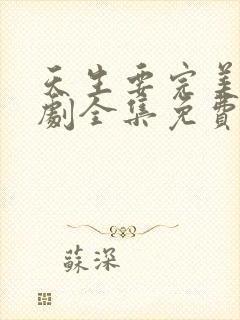 天生要完美
劇全集免費
蘇深